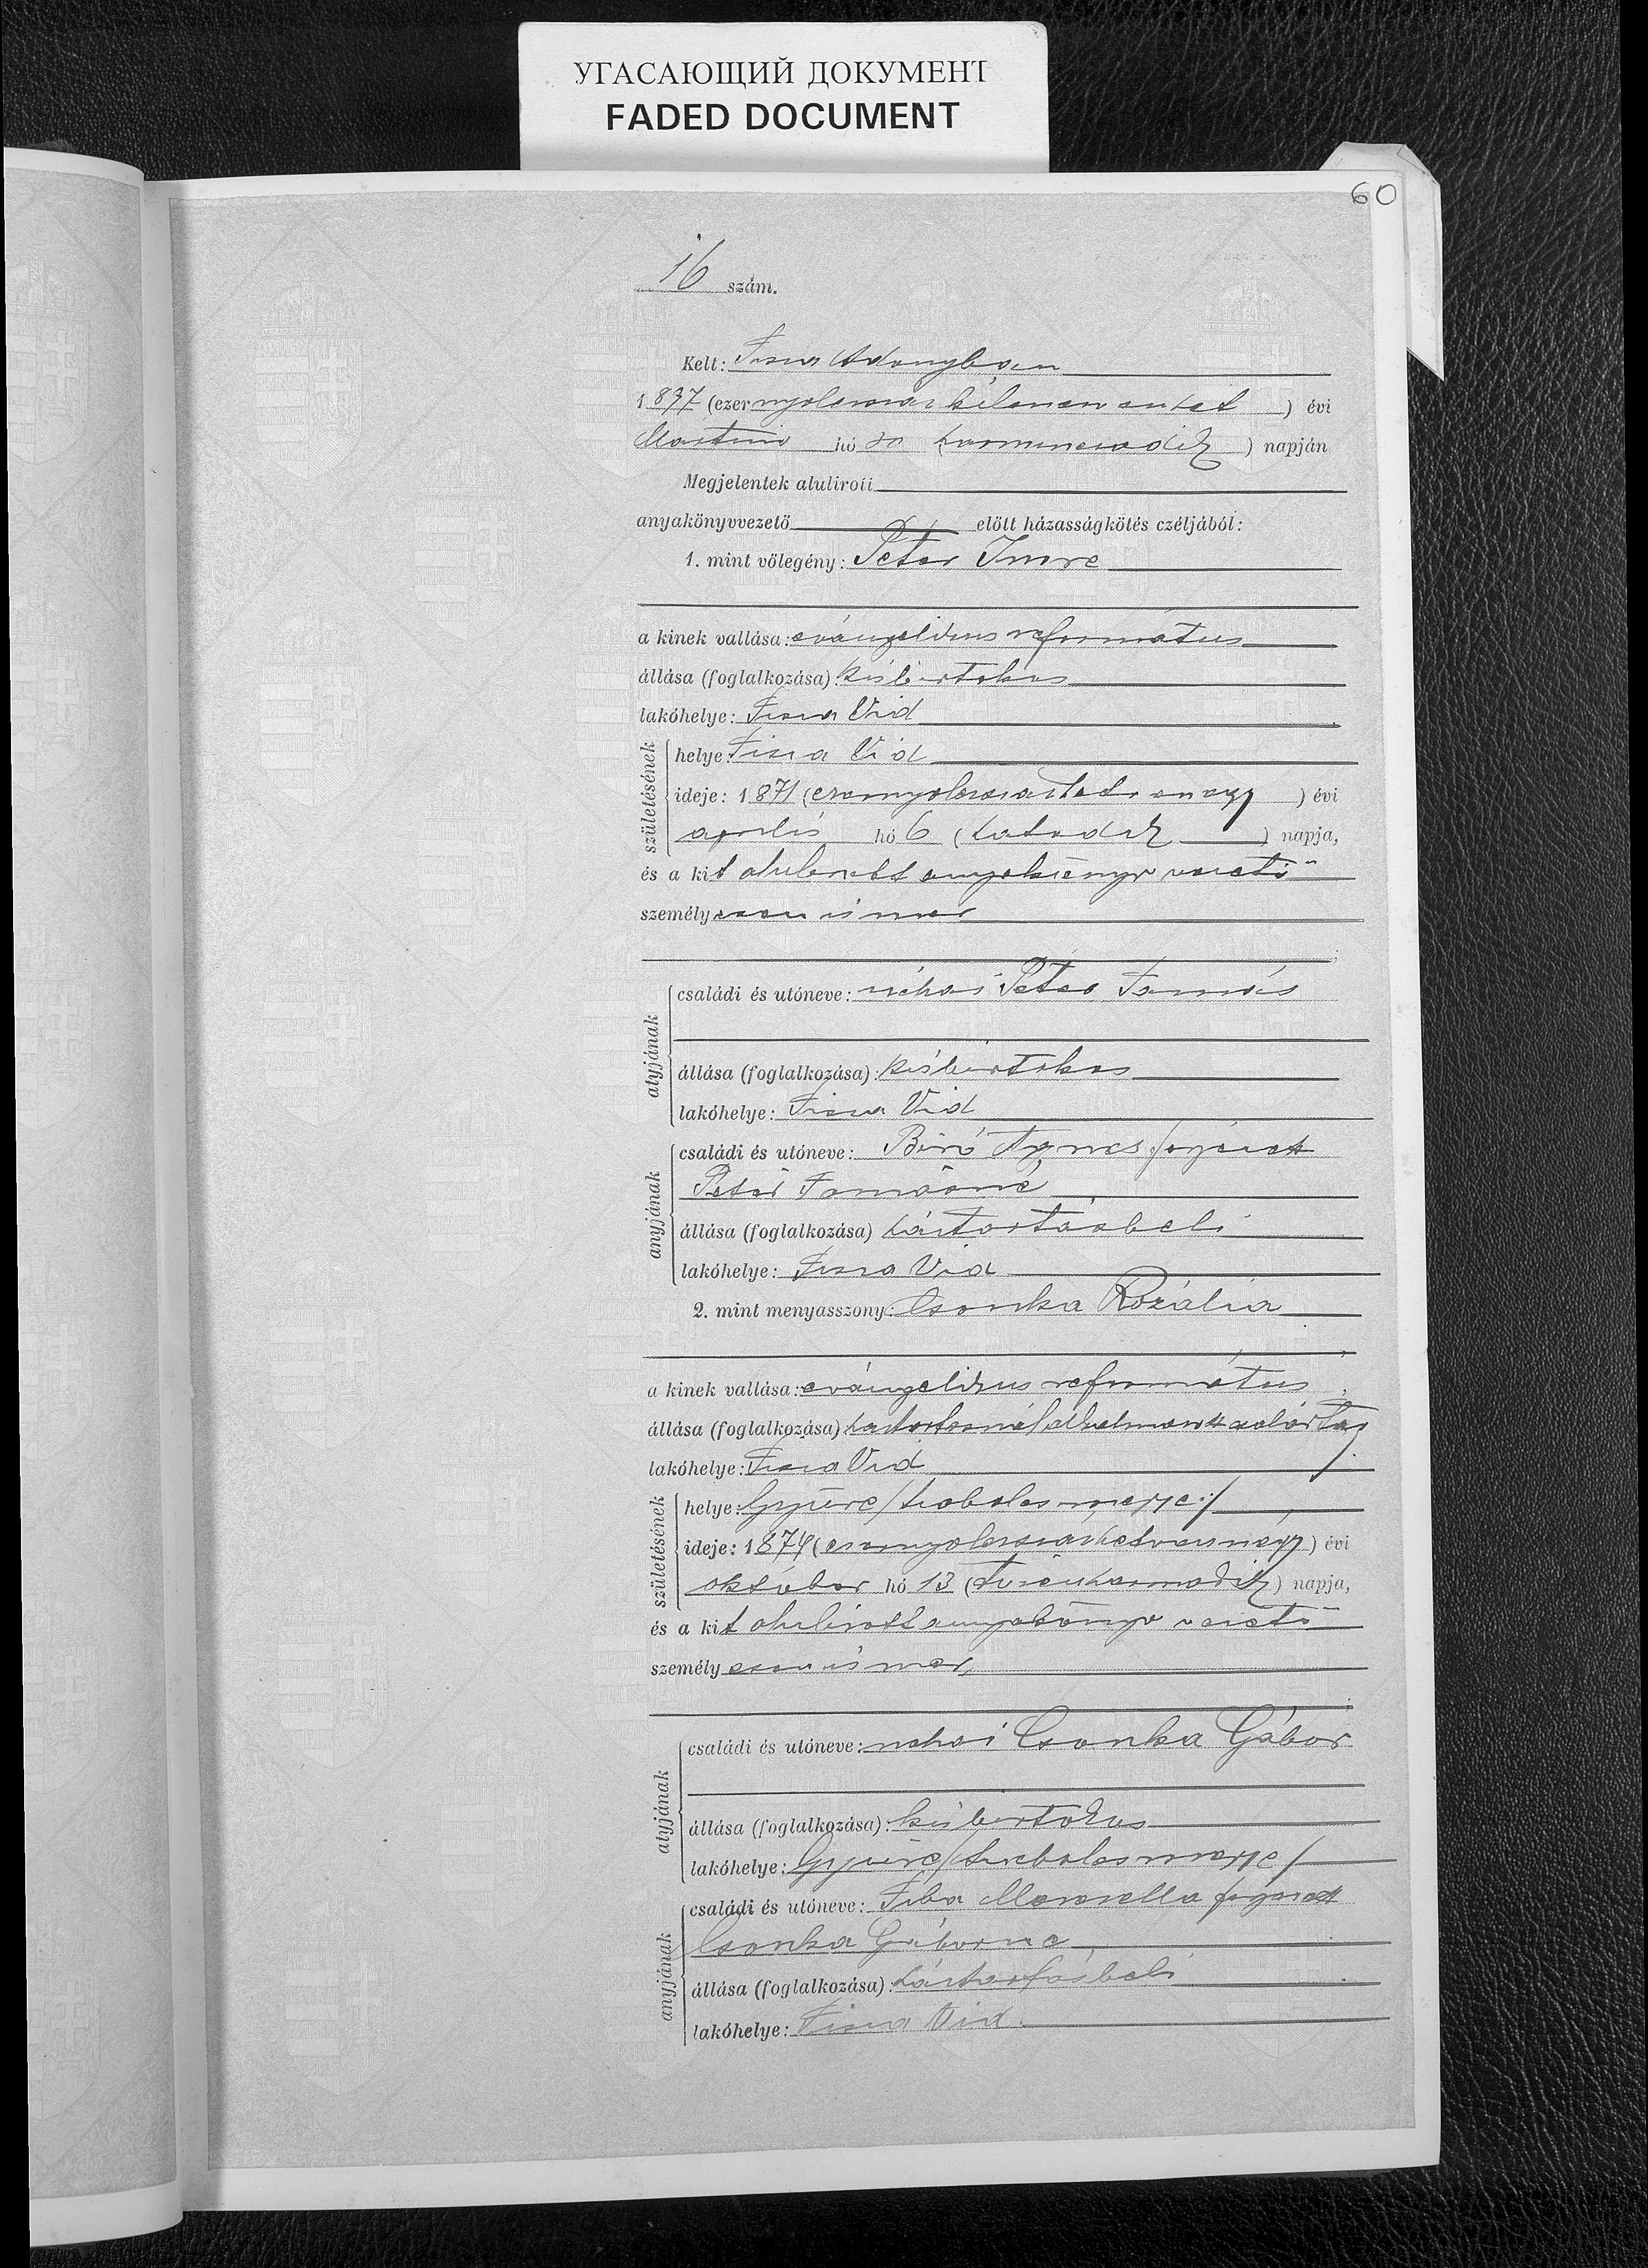 УГАСАЮЩИЙ ДОКУМЕНТ
FADED DOCUMENT
60
16 szám.
Kelt: Tisza Adonyban
1897 (ezernyolczszáz kilenczven hetet) évi
Martius hó 30 (harminczadik) napján
Megjelentek alulirott
anyakönyvvezető előtt házasságkötés czéljából:
1. mint vőlegény: Péter Imre
a kinek vallása: evángelikus református
állása (foglalkozása): kisbirtokos
lakóhelye: Tisza Vid
születésének
helye: Tisza Vid
ideje: 1871 (ezernyolczszázhetvenegy) évi
április hó 6 (hatodik) napja,
és a kit alulirott anyakönyv vezető
személyesen ismer
atyjának
családi és utóneve: néhai Péter Tamás
állása (foglalkozása): kisbirtokos
lakóhelye: Tisza Vid
anyjának
családi és utóneve: Biró Ágnes férjezett
Péter Tamásné
állása (foglalkozása) háztartásbeli
lakóhelye: Tisza Vid
2. mint menyasszony: Csonka Rozália
a kinek vallása: evángelikus református
állása (foglalkozása) háztartásnál alkalmazott családtag
lakóhelye: Tisza Vid
születésének
helye: Gyüre /Szabolcs megye/
ideje: 1874 (ezernyolczszázhetvennégy) évi
október hó 13 (tizenharmadik) napja,
és a kit alulirott anyakönyv vezető
személyesen ismer,
atyjának
családi és utóneve: néhai Csonka Gábor
állása (foglalkozása): kisbirtokos
lakóhelye: Gyüre /Szabolcs megye/
anyjának
családi és utóneve: Tiba férjezett
Csonka Gáborné
állása (foglalkozása): háztartásbeli
lakóhelye: Tisza Vid